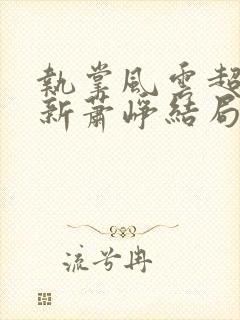 執掌風雲超
新蕭崢結局
流兮冉